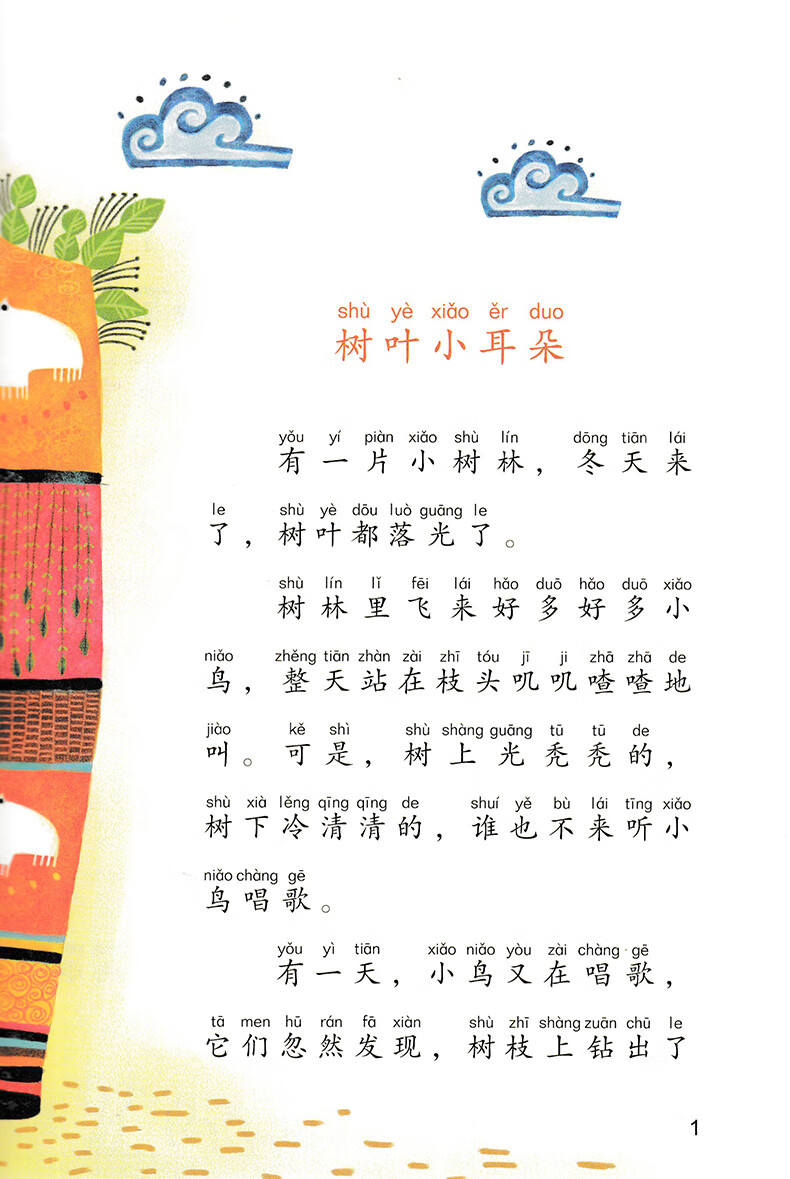 shù yè xiǎo ěr duo
树叶小耳朵
yǒu yí piàn xiǎo shù lín dōng tiān lái
有一片小树林，冬天来
le shù yè dōu luò guāng le
了，树叶都落光了。
shù lín lǐ fēi lái hǎo duō hǎo duō xiǎo
树林里飞来好多好多小
niǎo zhěng tiān zhàn zài zhī tóu jī ji zhā zhā de
鸟，整天站在枝头叽叽喳喳地
jiào kě shì shù shàng guāng tū tū de
叫。可是，树上光秃秃的，
shù xià lěng qīng qīng de shuí yě bù lái tīng xiǎo
树下冷清清的，谁也不来听小
niǎo chàng gē
鸟唱歌。
yǒu yì tiān xiǎo niǎo yòu zài chàng gē
有一天，小鸟又在唱歌，
tā men hū rán fā xiàn shù zhī shàng zuān chū le
它们忽然发现，树枝上钻出了
1